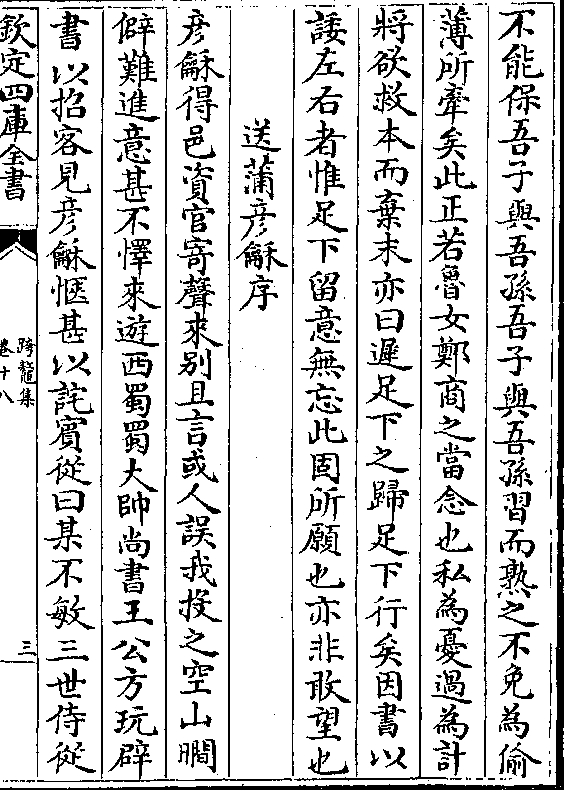 不能保吾子與吾孫吾子與吾孫習而熟之不免為偷
薄所牽矣此正若魯女鄭商之當念也私為憂過為計
將欲救本而棄末亦曰遲足下之歸足下行矣因書以
諉左右者惟足下留意無忘此固所願也亦非敢望也
送蒲彦龢序
彦龢得邑資官寄聲來别且言或人誤我投之空山閒
僻難進意甚不懌來遊西蜀蜀大帥尚書王公方玩辟
書以招客見彦龢愜甚以詫賓從曰某不敏三世侍從
欽定四庫全書
跨鼇集
卷十八
三